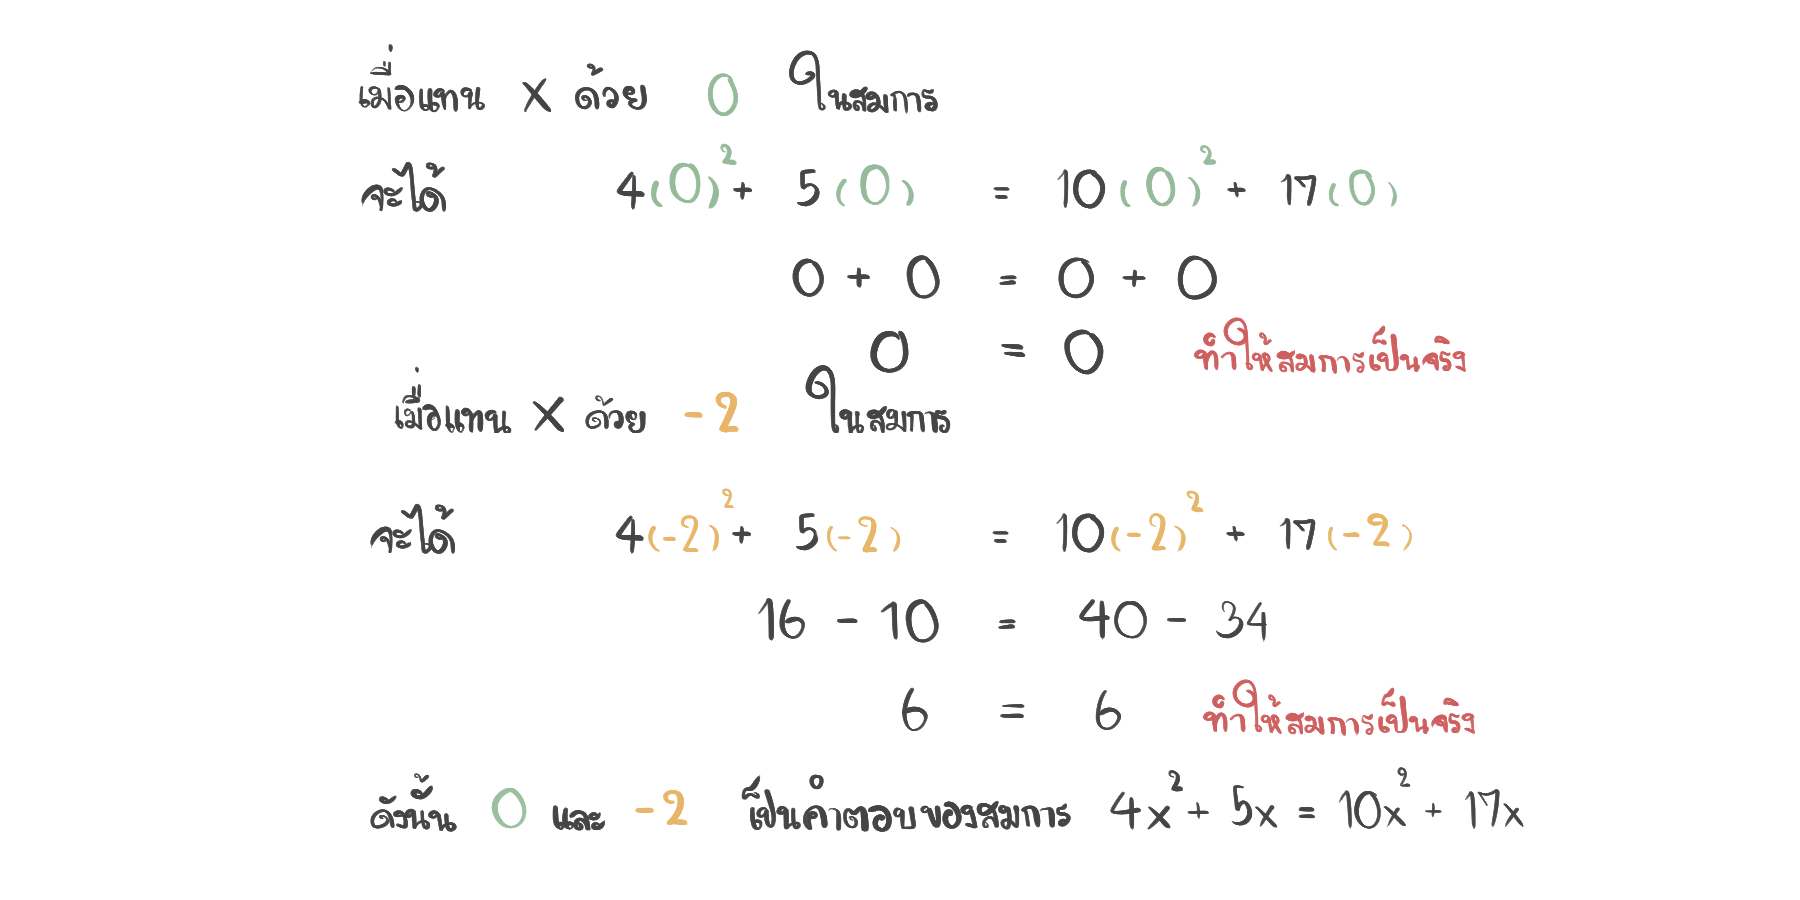 เมื่อแทน x ด้วย 0 ในสมการ
จะได้ 4(0)² + 5(0) = 10(0)² + 17(0)
0 + 0 = 0 + 0
0 = 0 ทำให้สมการเป็นจริง
เมื่อแทน x ด้วย -2 ในสมการ
จะได้ 4(-2)² + 5(-2) = 10(-2)² + 17(-2)
16 - 10 = 40 - 34
6 = 6 ทำให้สมการเป็นจริง
ดังนั้น 0 และ -2 เป็นคำตอบของสมการ 4x² + 5x = 10x² + 17x